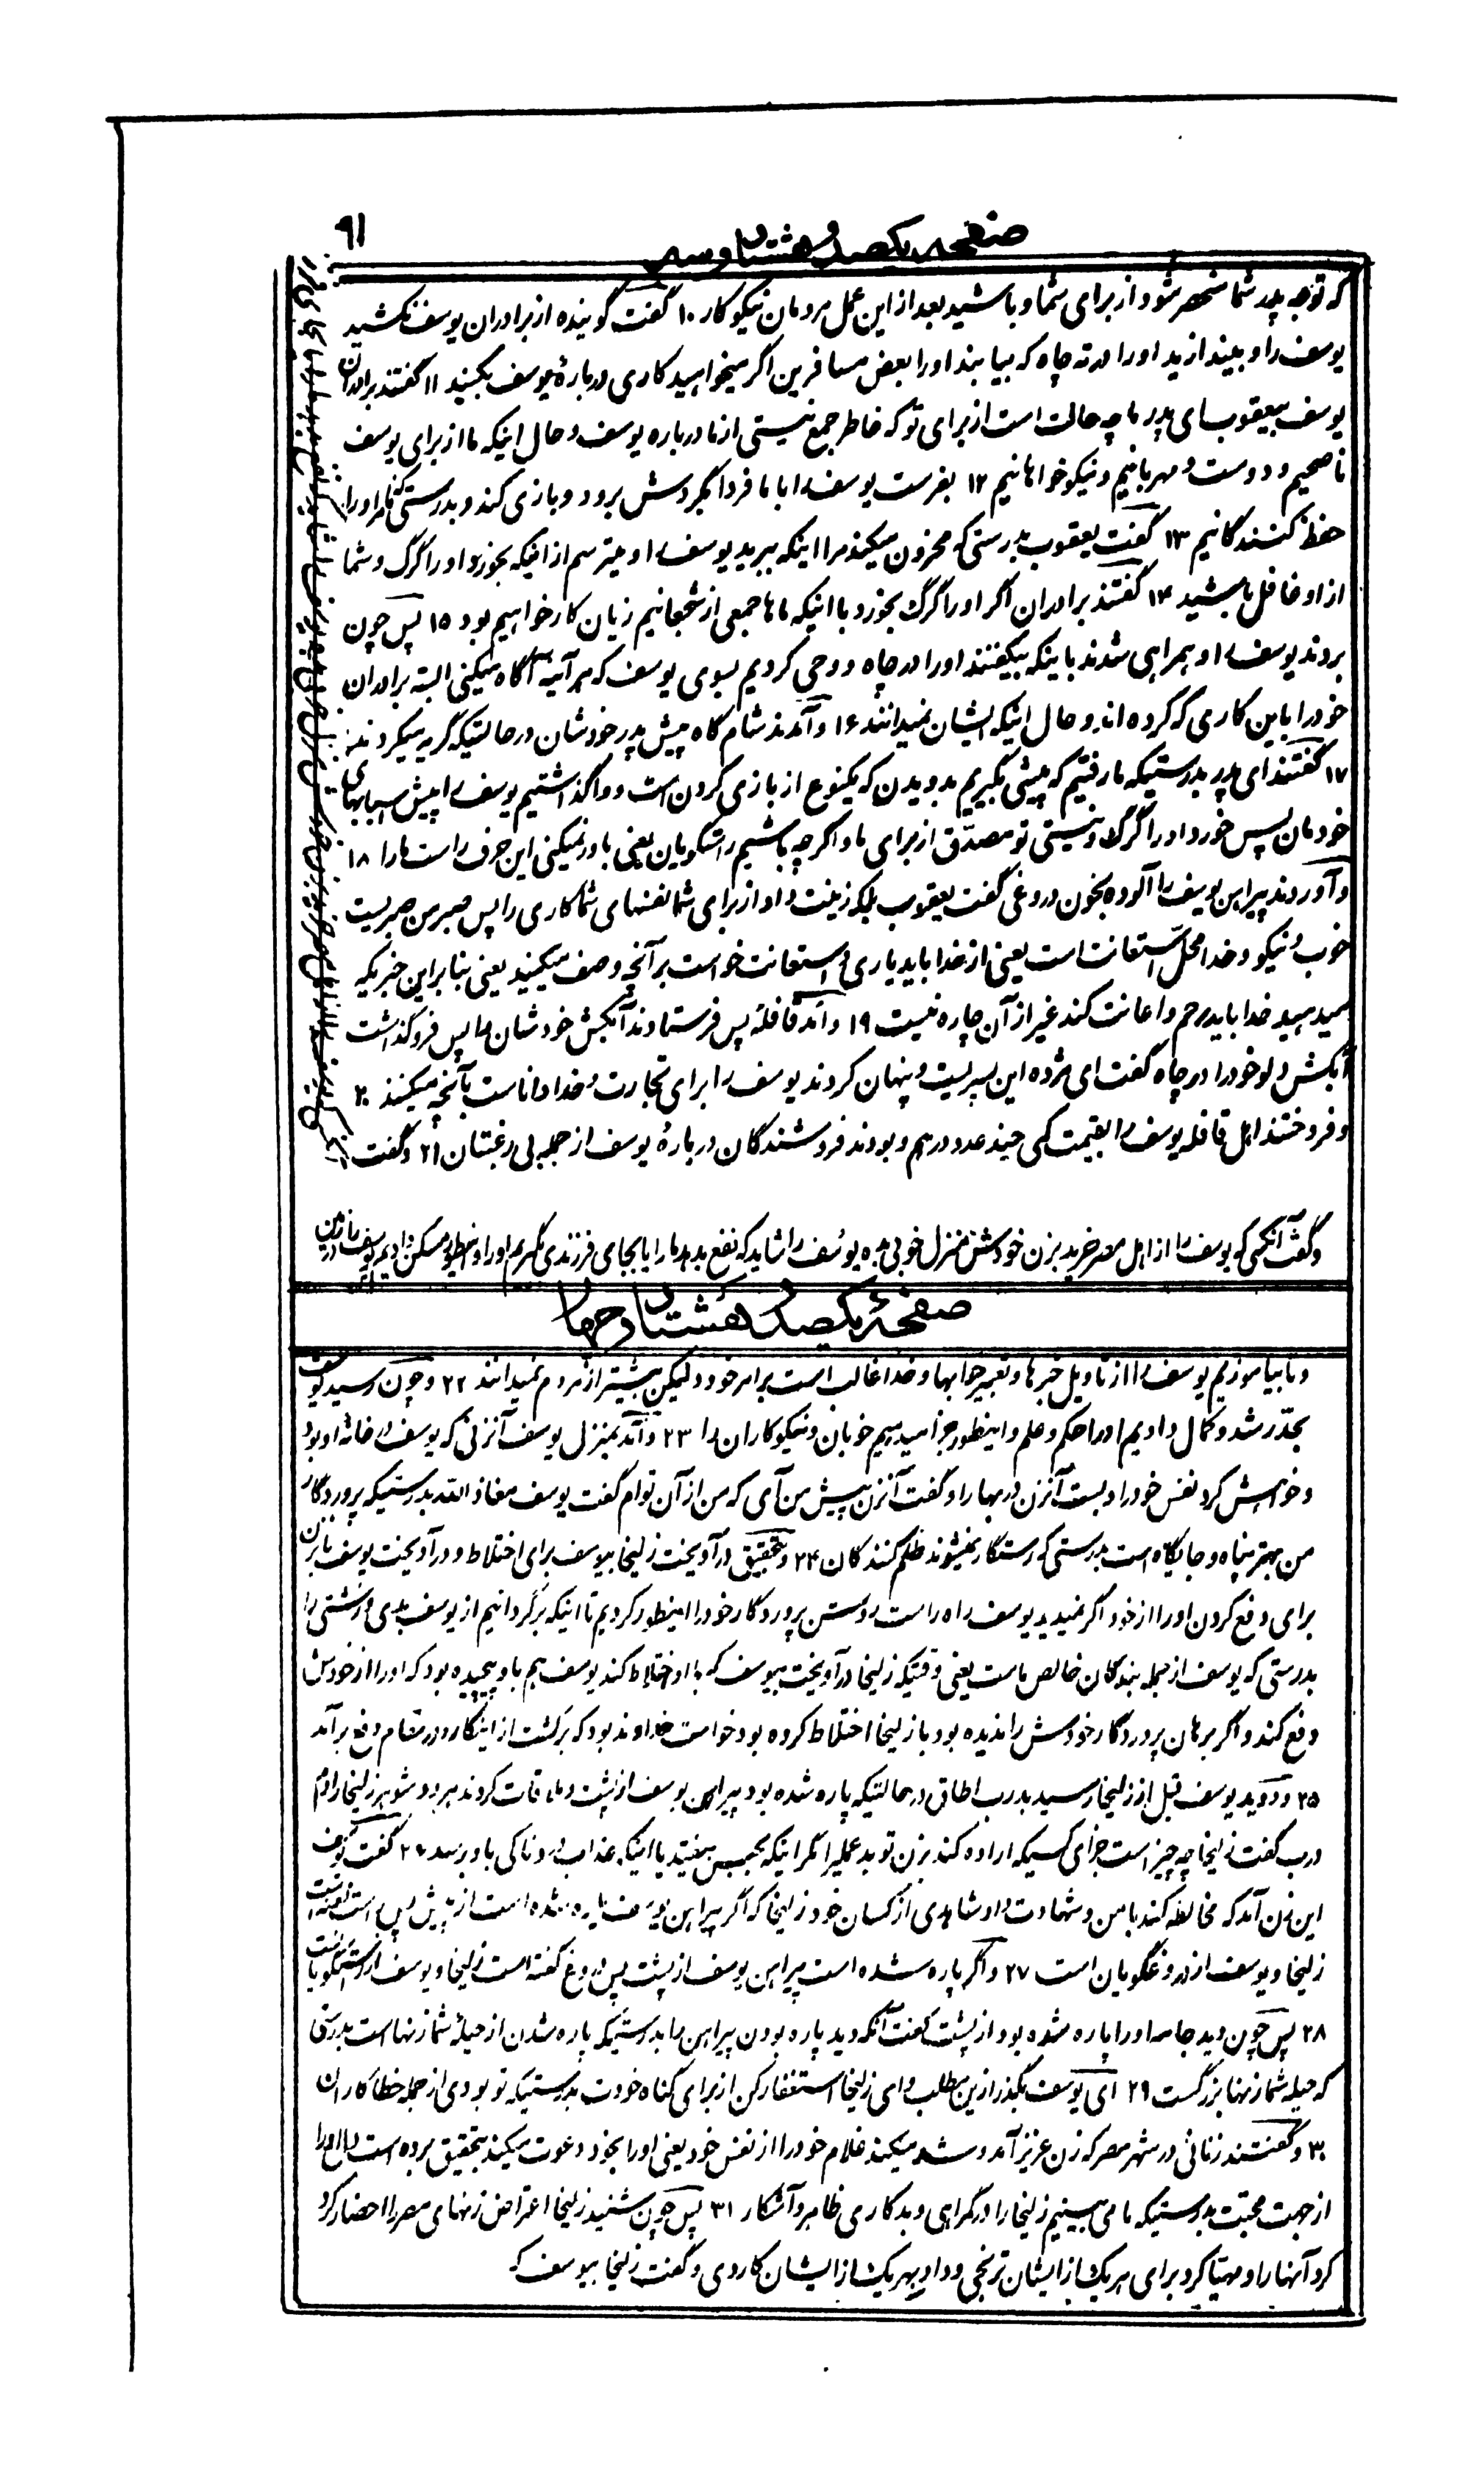 ۹۱
صفحه یکصد و هشتاد و سه
که توجه پدر شما منحصر شود از برای شما و باشید بعد از این عمل مردمان نیکوکار ۱۰ گفت گوینده از برادران یوسف نکشید
یوسف را و بیندازید او را در ته چاه که بیابند او را بعض مسافرین اگر میخواهید کاری درباره یوسف بکنید ۱۱ گفتند برادران
یوسف بیعقوب ای پدر ما چه حالت است از برای تو که خاطر جمع نیستی از ما درباره یوسف و حال اینکه ما از برای یوسف
ناصحیم و دوست و مهربانیم و نیکو خواهانیم ۱۲ بفرست یوسف را با ما فردا بگردش برود و بازی کند و بدرستیکه ما مر او را
حفظ کنندگانیم ۱۳ گفت یعقوب بدرستی که محزون میکند مرا اینکه ببرید یوسف را و میترسم از اینکه بخورد او را گرگ و شما
از او غافل باشید ۱۴ گفتند برادران اگر او را گرگ بخورد با اینکه ماها جمعی از شجعانیم زیان کار خواهیم بود ۱۵ پس چون
بردند یوسف را و همراهی شدند باینکه بیفکنند او را در چاه و وحی کردیم بسوی یوسف که هر آینه آگاه میکنی البته برادران
خود را باین کاری که کرده اند و حال اینکه ایشان نمیدانند ۱۶ و آمدند شام گاه پیش پدر خودشان در حالتیکه گریه میکردند
۱۷ گفتند ای پدر بدرستیکه ما رفتیم که پیشی بگیریم بدویدن که یکنوع از بازی کردن است و واگذاشتیم یوسف را پیش اسبابهای
خودمان پس خورد او را گرگ و نیستی تو مصدّق از برای ما و اگر چه باشیم راستگویان یعنی باور نمیکنی این حرف راست ما را ۱۸
و آوردند پیراهن یوسف را آلوده بخون دروغی گفت یعقوب بلکه زینت داد از برای شما نفسهای شما کاری را پس صبر من صبریست
خوب و نیکو و خدا محل استعانت است یعنی از خدا باید یاری و استعانت خواست بر آنچه وصف میکنید یعنی بنا بر این خبریکه
میدهید خدا باید رحم و اعانت کند غیر از آن چاره نیست ۱۹ و آمد قافله پس فرستادند آبکش خودشان را پس فروگذاشت
آبکش دلو خود را در چاه گفت ای مژده این پسریست و پنهان کردند یوسف را برای تجارت و خدا داناست بآنچه میکنند ۲۰
و فروختند اهل قافله یوسف را بقیمت کمی چند عدد درهم و بودند فروشندگان درباره یوسف از جمله بی رغبتان ۲۱ و گفت
و گفت آنکسی که یوسف را از اهل مصر خرید بزن خودش منزل خوبی بده یوسف را شاید که نفع بدهد ما را یا بجای فرزندی بگیریم او را و اینطور مسکن دادیم یوسف را در زمین
صفحه یکصد و هشتاد و چهار
و تا بیاموزیم یوسف را از تاویل خبرها و تعبیر خوابها و خدا غالب است بر امر خود و لیکن بیشتر از مردم نمیدانند ۲۲ و چون رسید یوسف
بحد رشد و کمال دادیم او را حکم و علم و اینطور جزا میدهیم خوبان و نیکوکاران را ۲۳ و آمد بمنزل یوسف آنزنی که یوسف در خانه او بود
و خواهش کرد نفس خود را و بست آنزن دربها را و گفت آنزن پیش من آی که من از آن توام گفت یوسف معاذ الله بدرستیکه پروردگار
من بهتر پناه و جایگاه است بدرستی که رستگار نمیشوند ظلم کنندگان ۲۴ و بتحقیق در آویخت زلیخا بیوسف برای اختلاط و در آویخت یوسف بآنزن
برای دفع کردن او را از خود اگر نمیدید یوسف راه راست روشن پروردگار خود را اینطور کردیم تا اینکه برگردانیم از یوسف بدی و زشتی را
بدرستی که یوسف از جمله بندگان خالص ماست یعنی وقتیکه زلیخا در آویخت بیوسف که با او اختلاط کند یوسف هم باو پیچیده بود که او را از خودش
دفع کند و اگر برهان پروردگار خودش را ندیده بود با زلیخا اختلاط کرده بود خواست خداوند بود که برگشت از اینکار و در مقام دفع برآمد
۲۵ و دوید یوسف قبل از زلیخا رسید بدرب اطاق در حالتیکه پاره شده بود پیراهن یوسف از پشت و ملاقات کردند هر دو شوهر زلیخا را دم
درب گفت زلیخا چه چیز است جزای کسیکه اراده کند بزن تو بد عملی را مگر اینکه بحبس بیفتد یا اینکه عذاب دردناکی باو برسد ۲۶ گفت یوسف
این زن آمد که مخالطه کند با من و شهادت داد شاهدی از کسان خود زلیخا که اگر پیراهن یوسف پاره شده است از پیش پس راست گفته است
زلیخا و یوسف از دروغگویان است ۲۷ و اگر پاره شده است پیراهن یوسف از پشت پس دروغ گفته است زلیخا و یوسف از راستگویان است
۲۸ پس چون دید جامه او را پاره شده بود از پشت گفت آنکه دید پاره بودن پیراهن را بدرستیکه پاره شدن از حیله شما زنها است بدرستی
که حیله شما زنها بزرگست ۲۹ ای یوسف بگذر ازین مطلب و ای زلیخا استغفار کن از برای گناه خودت بدرستیکه تو بودی از جمله خطاکاران
۳۰ و گفتند زنانی در شهر مصر که زن عزیز آمد و شد میکند غلام خود را از نفس خود یعنی او را بخود دعوت میکند بتحقیق برده است دل او را
از جهت محبت بدرستیکه ما می بینیم زلیخا را در گمراهی و بدکاری ظاهر و آشکار ۳۱ پس چون شنید زلیخا اعتراض زنهای مصر را احضار کرد
کرد آنها را و مهیا کرد برای هر یک از ایشان ترنجی و داد بهر یک از ایشان کاردی و گفت زلیخا بیوسف که